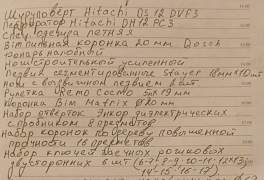 Шуруповёрт Hitachi DS 12 DVF3
Перфоратор Hitachi DH12 PC3
Спец. одежда летняя
Вітпильная коронка 20 мм Bosch
Фонарь налобный
Нош строительной усиленной
Лезвия сегментированные Stayer 18мм 10шт
Нож с выдвижным лезвием 2 шт
Рулетка Vremo Cocebo 5м х 19мм
Коронка Bim Matrix Ø20мм
Набор отвёрток Энкор диэлектрических
с пробником 8 предметов
Набор коронок по дереву повышенной
прочности 16 предметов
Набор ключей гаечных рожковых
двусторонних 8 шт (6-7; 8-9; 10-11; 12-13;
14-15; 16-17)